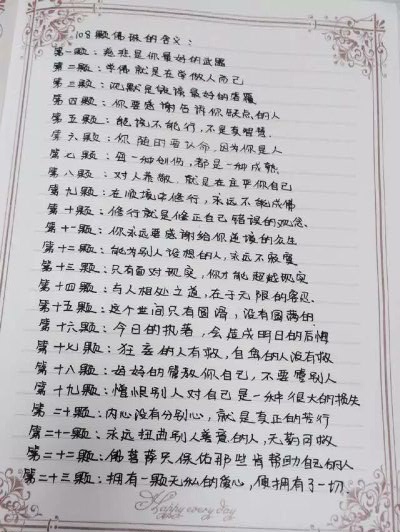 108颗佛珠的含义：
第一颗：慈悲是你最好的武器
第二颗：学佛就是在学做人而已
第三颗：沉默是毁谤最好的答覆
第四颗：你要感谢告诉你缺点的人
第五颗：能说不能行，不是真智慧.
第六颗：你随时要认命，因为你是人
第七颗：每一种创伤，都是一种成熟
第八颗：对人恭敬，就是在庄严你自己
第九颗：在顺境中修行，永远不能成佛
第十颗：修行就是修正自己错误的观念.
第十一颗：你永远要感谢给你逆境的众生
第十二颗：能为别人设想的人，永远不寂寞
第十三颗：只有面对现实，你才能超越现实
第十四颗：与人相处之道，在于无限的容忍.
第十五颗：这个世间只有圆滑，没有圆满的
第十六颗：今日的执著，会造成明日的后悔
第十七颗：狂妄的人有救，自卑的人没有救
第十八颗：好好的管教你自己，不要管别人
第十九颗：憎恨别人对自己是一种很大的损失
第二十颗：内心没有分别心，就是真正的苦行
第二十一颗：永远扭曲别人善意的人，无药可救
第二十二颗：佛菩萨只保佑那些肯帮助自己的人
第二十三颗：拥有一颗无私的爱心，便拥有了一切.
Happy every day